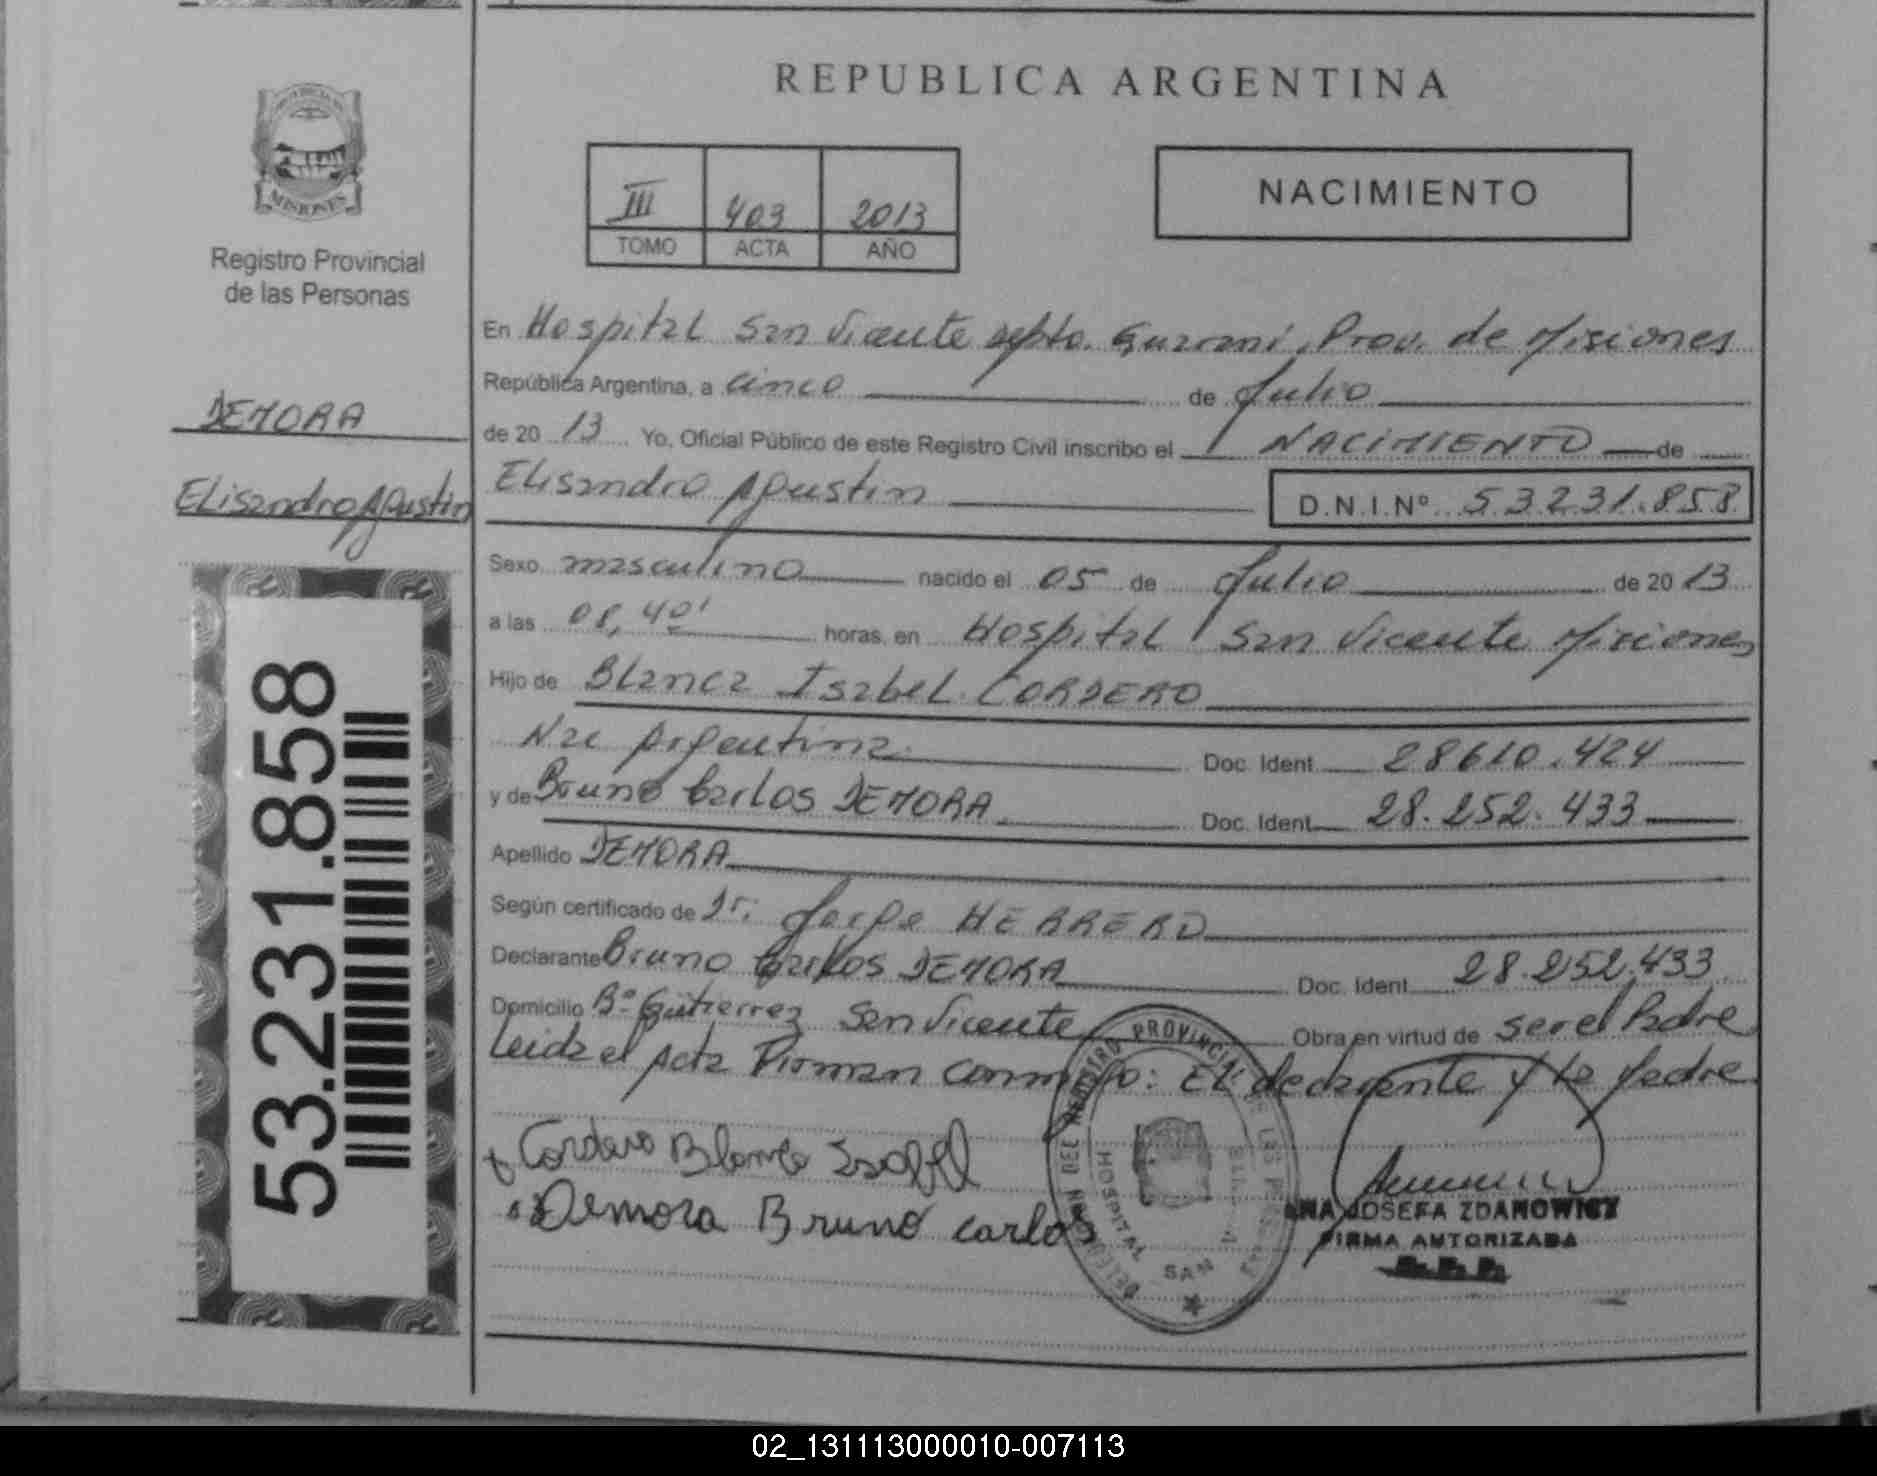 REPUBLICA ARGENTINA
MISIONES
Registro Provincial
de las Personas
III 403 2013
TOMO ACTA AÑO
NACIMIENTO
En Hospital San Vicente Dpto. Guaraní, Prov. de Misiones
República Argentina, a cinco de Julio
de 20 13 Yo, Oficial Público de este Registro Civil inscribo el NACIMIENTO de
Elisandro Agustin D.N.I.Nº 53.231.858
DEMORA
Elisandro Agustin
53.231.858
Sexo masculino nacido el 05 de Julio de 20 13
a las 08,40' horas, en Hospital San Vicente Misiones
Hijo de Blanca Isabel CORDERO
Nac Argentina Doc. Ident 28610.424
y de Bruno Carlos DEMORA Doc. Ident 28.252.433
Apellido DEMORA
Según certificado de Dr: Jorge HERRERO
Declarante Bruno Carlos DEMORA Doc. Ident 28.252.433
Domicilio Bº Gutierrez San Vicente Obra en virtud de ser el Padre
Leida el Acta Firman conmigo: El declarante y la Madre
Cordero Blanca Isabel
Demora Bruno Carlos
DEL REGISTRO PROVINCIAL DE LAS PERSONAS
HOSPITAL SAN
ANA JOSEFA ZDANOWICZ
FIRMA AUTORIZADA
02_131113000010-007113